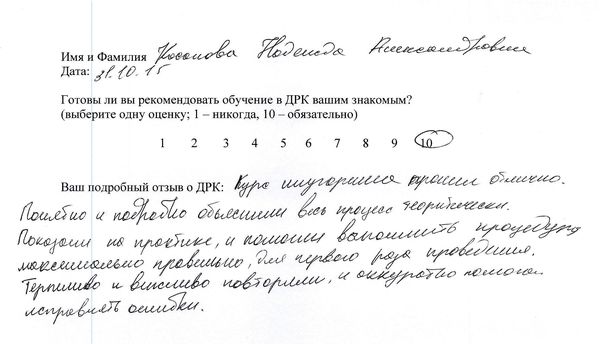 Имя и Фамилия Косолова Надежда Александровна
Дата: 31.10.15
Готовы ли вы рекомендовать обучение в ДРК вашим знакомым?
(выберите одну оценку; 1 – никогда, 10 – обязательно)
1 2 3 4 5 6 7 8 9 10
Ваш подробный отзыв о ДРК: Курс шугаринга прошел отлично.
и подробно объяснили весь процесс теоретически.
Показали на практике, и помогли выполнить процедуру
максимально правильно, для первого раза проведения.
Терпеливо и вежливо повторяли, и аккуратно помогали
исправлять ошибки.